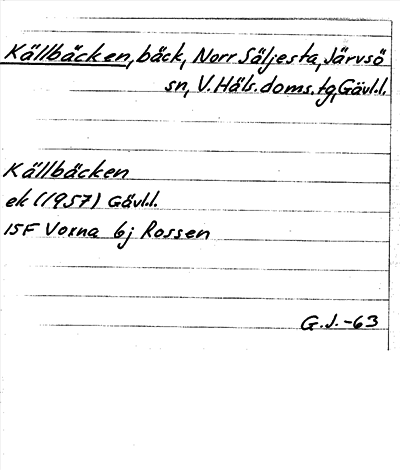 Källbäcken, bäck, Norr Säljesta, Järvsö
sn, V. Häls. doms. tg, Gävl.l.
Källbäcken
ek (1957) Gävl.l.
15F Voxna 6j Rossen
G.J.-63